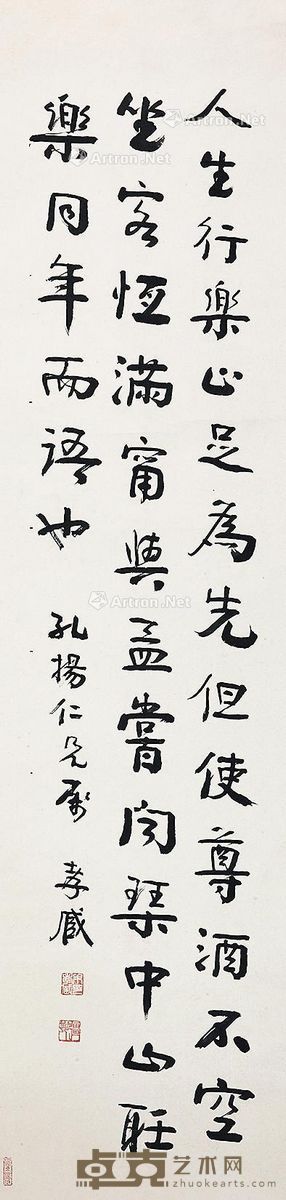 人生行樂止足為先但使尊酒不空
坐客恒滿甯與孟嘗聞琴中山聽
樂同年而語也
孔揚仁兄屬 孝臧
Artron.Net
Artron.Net
Artron.Net
Artron.Net
卓克艺术网
www.zhuokearts.com